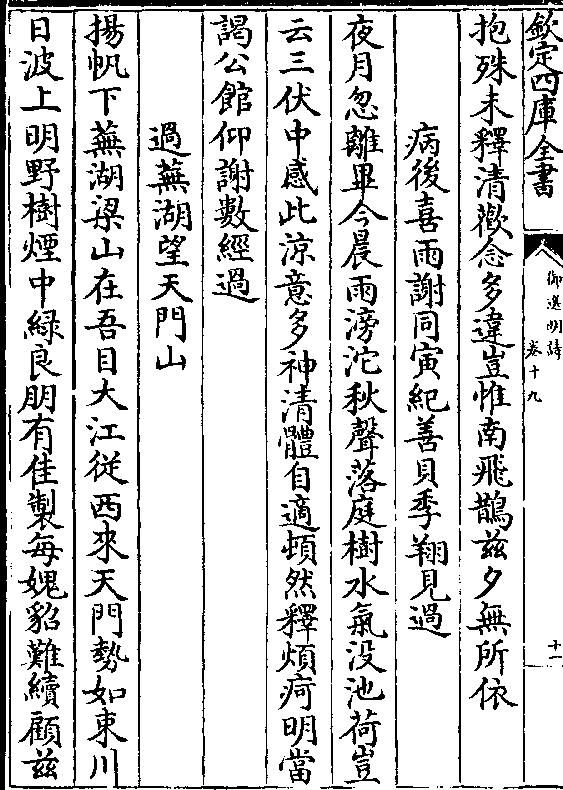 欽定四庫全書
御選明詩
卷十九
十一
抱殊未釋清歡念多違豈惟南飛鵲兹夕無所依
病後喜雨謝同寅紀善貝季翔見過
夜月忽離畢今晨雨滂沱秋聲落庭樹水氣没池荷豈
云三伏中感此涼意多神清體自適頓然釋煩疴明當
謁公館仰謝數經過
過蕪湖望天門山
揚帆下蕪湖梁山在吾目大江從西來天門勢如束川
日波上明野樹煙中緑良朋有佳製每媿貂難續顧兹